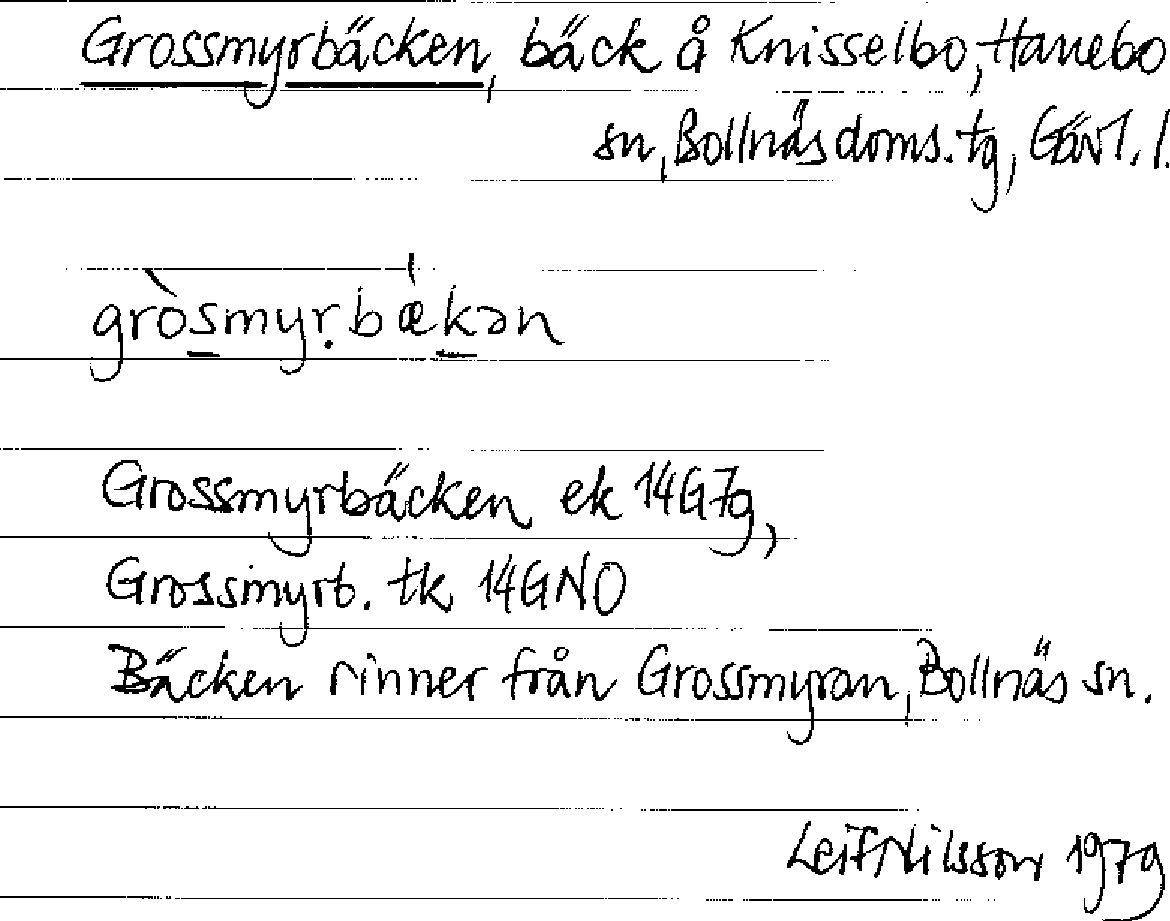 Grossmyrbäcken, bäck å Knisselbo, Hanebo
sn, Bollnäs doms. tg, Gävl. l.
gròsmyṛbǽkən
Grossmyrbäcken ek 14G7g,
Grossmyrb. tk 14GNO
Bäcken rinner från Grossmyran, Bollnäs sn.
Leif Nilsson 1979